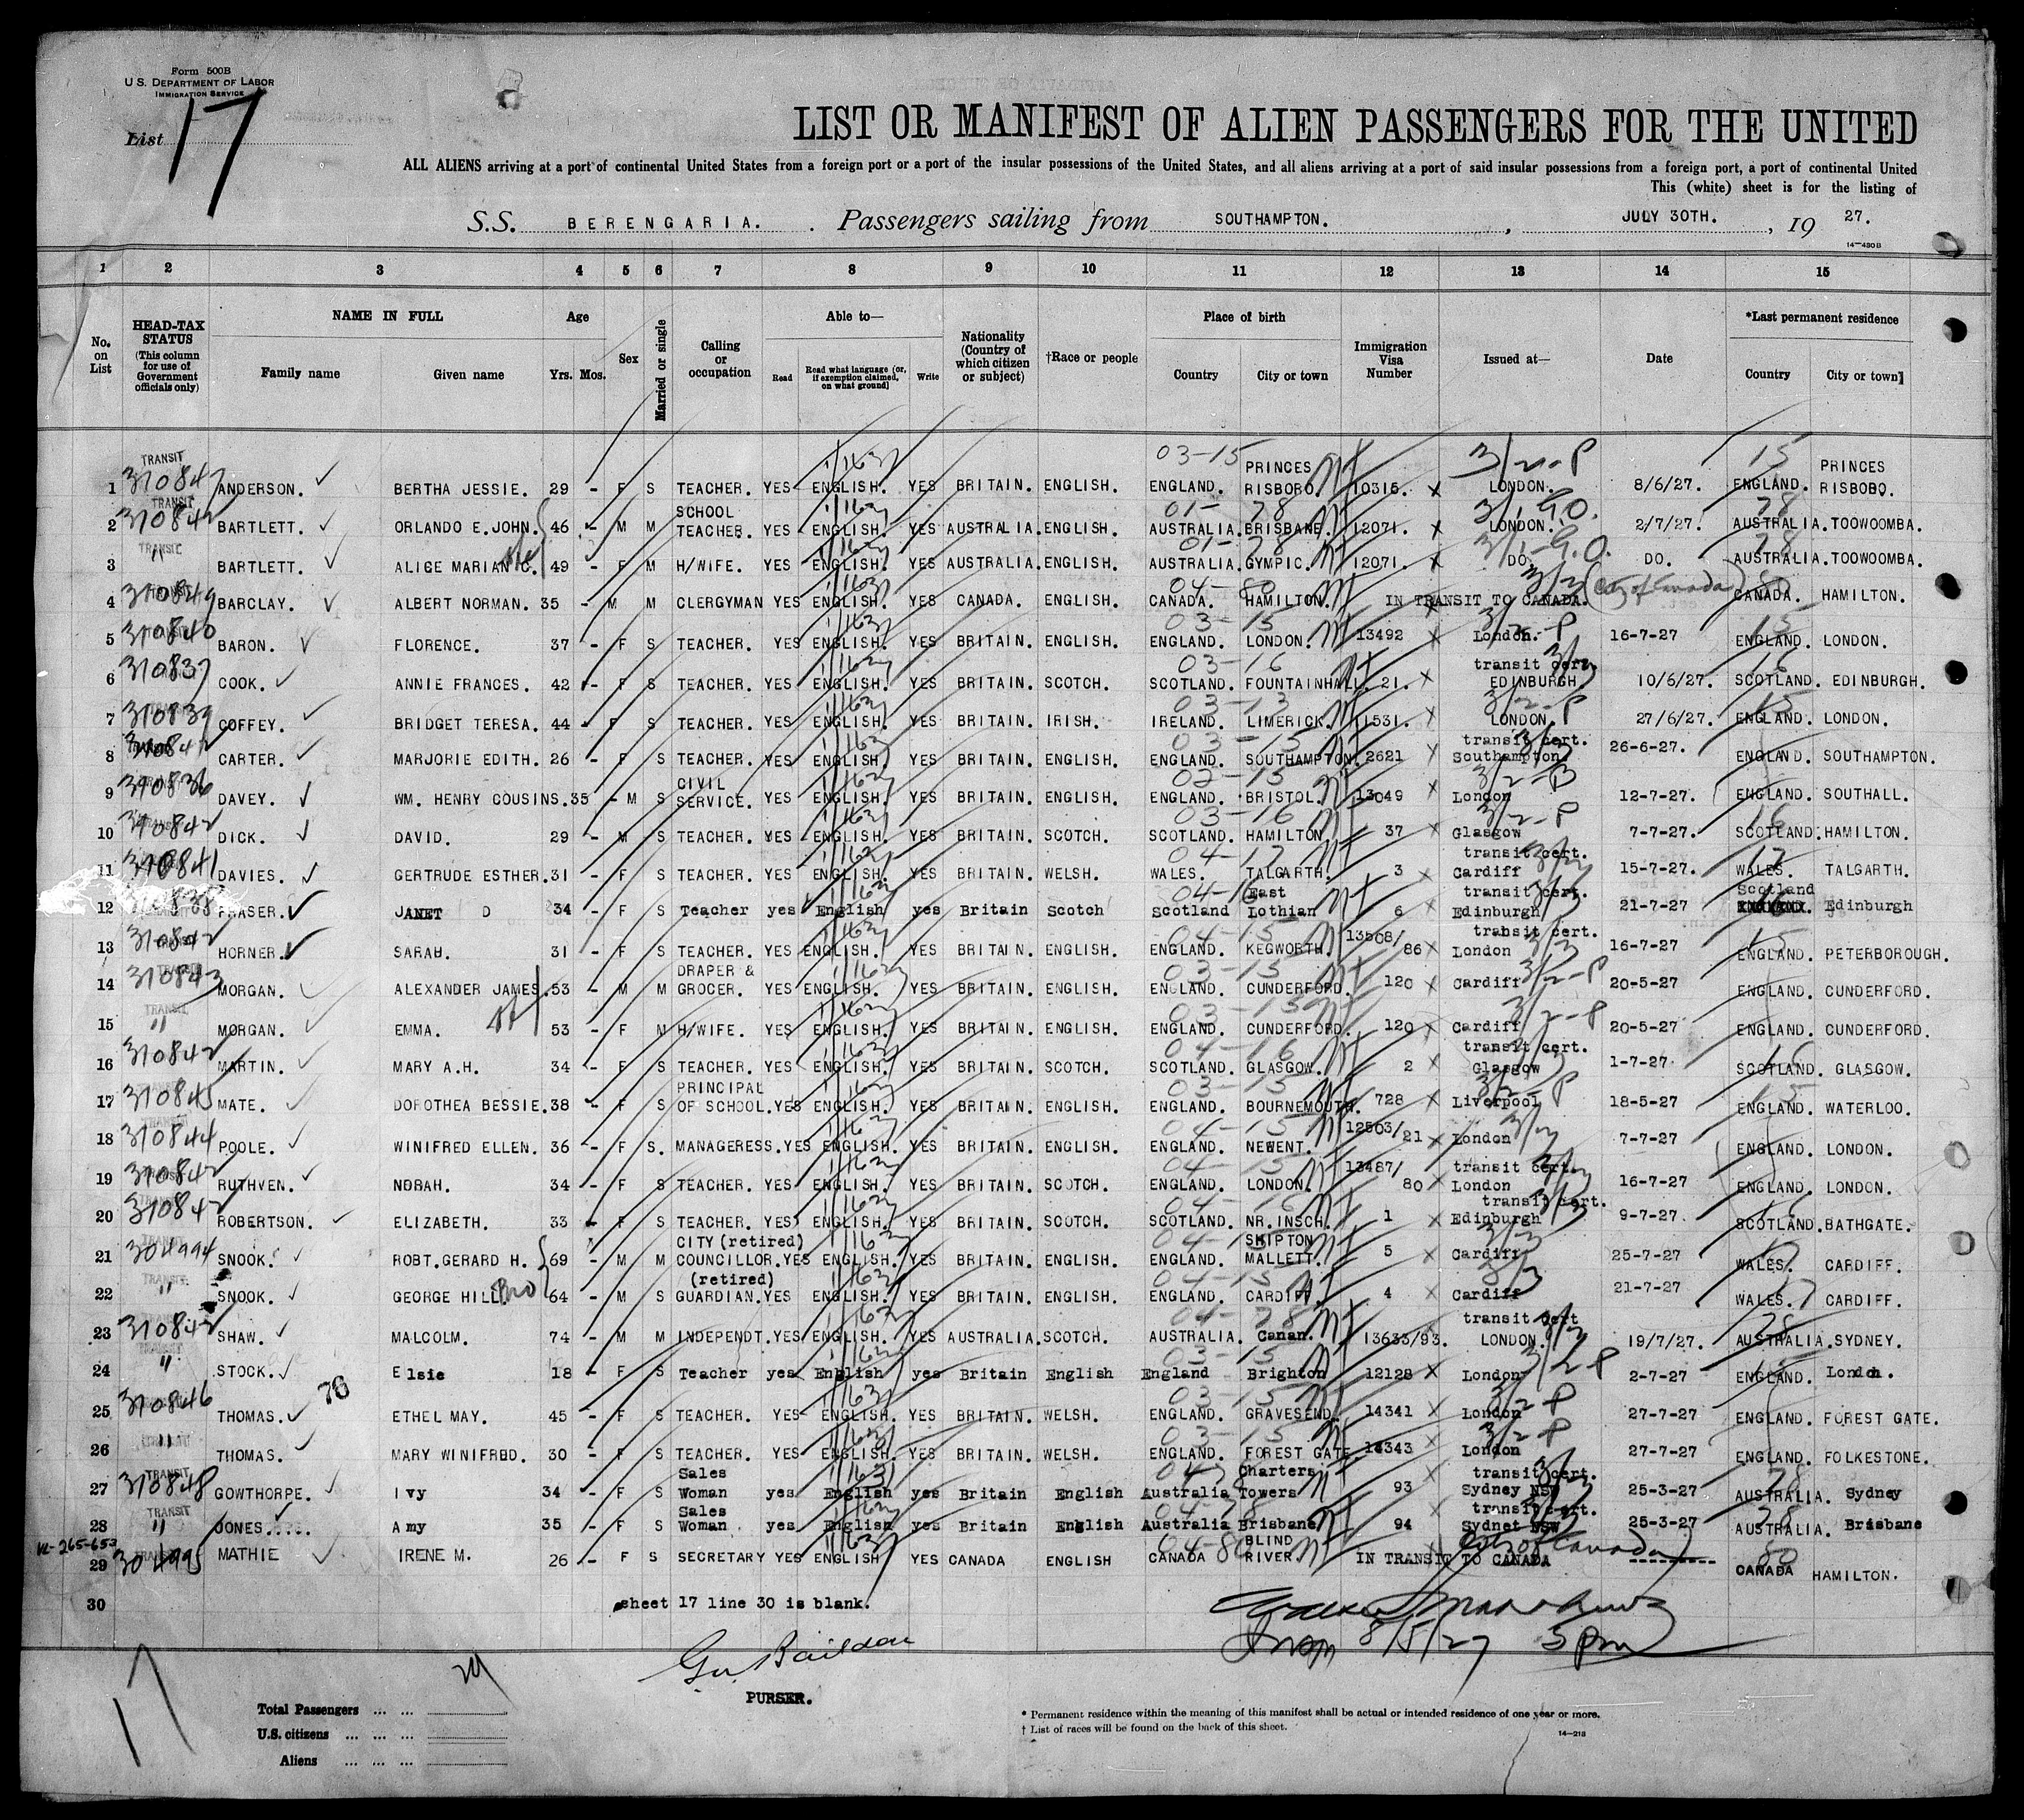 Form 500B
U.S. DEPARTMENT OF LABOR
IMMIGRATION SERVICE
List 17
LIST OR MANIFEST OF ALIEN PASSENGERS FOR THE UNITED
ALL ALIENS arriving at a port of continental United States from a foreign port or a port of the insular possessions of the United States, and all aliens arriving at a port of said insular possessions from a foreign port, a port of continental United
This (white) sheet is for the listing of
S.S. BERENGARIA. Passengers sailing from SOUTHAMPTON. , JULY 30TH. , 19 27.
14-430B
1 2 3 4 5 6 7 8 9 10 11 12 13 14 15
No. on List HEAD-TAX STATUS (This column for use of Government officials only) NAME IN FULL Family name Given name Age Yrs. Mos. Sex Married or single Calling or occupation Able to— Read Read what language (or, if exemption claimed, on what ground) Write Nationality (Country of which citizen or subject) †Race or people Place of birth Country City or town Immigration Visa Number Issued at— Date *Last permanent residence Country City or town
1 TRANSIT 310847 ANDERSON. BERTHA JESSIE. 29 - F S TEACHER. YES ENGLISH. YES BRITAIN. ENGLISH. 03-15 ENGLAND. PRINCES RISBORO. 10315. LONDON. 3/2-P 8/6/27. 15 ENGLAND. PRINCES RISBORO.
2 TRANSIT 310842 BARTLETT. ORLANDO E.JOHN. 46 - M M SCHOOL TEACHER. YES ENGLISH. YES AUSTRALIA. ENGLISH. 01-78 AUSTRALIA. BRISBANE. 12071. LONDON. 2/7/27. 78 AUSTRALIA. TOOWOOMBA.
3 TRANSIT " BARTLETT. ALICE MARIAN C. 49 - F M H/WIFE. YES ENGLISH. YES AUSTRALIA. ENGLISH. 01-78 AUSTRALIA. GYMPIC. 12071. DO. DO. 78 AUSTRALIA. TOOWOOMBA.
4 310849 BARCLAY. ALBERT NORMAN. 35 - M M CLERGYMAN YES ENGLISH. YES CANADA. ENGLISH. 04-80 CANADA. HAMILTON. IN TRANSIT TO CANADA. 3/3 (Ctz of Canada) 80 CANADA. HAMILTON.
5 310840 BARON. FLORENCE. 37 - F S TEACHER. YES ENGLISH. YES BRITAIN. ENGLISH. 03-15 ENGLAND. LONDON. 13492 London. 3/2-P 16-7-27 15 ENGLAND. LONDON.
6 310837 COOK. ANNIE FRANCES. 42 - F S TEACHER. YES ENGLISH. YES BRITAIN. SCOTCH. 03-16 SCOTLAND. FOUNTAINHALL. 21. transit cert. EDINBURGH 10/6/27. 16 SCOTLAND. EDINBURGH.
7 310839 COFFEY. BRIDGET TERESA. 44 - F S TEACHER. YES ENGLISH. YES BRITAIN. IRISH. 03-13 IRELAND. LIMERICK. 11531. LONDON. 3/2-P 27/6/27. 15 ENGLAND. LONDON.
8 310842 CARTER. MARJORIE EDITH. 26 - F S TEACHER. YES ENGLISH. YES BRITAIN. ENGLISH. 03-15 ENGLAND. SOUTHAMPTON. 2621 transit cert. Southampton 26-6-27. ENGLAND. SOUTHAMPTON.
9 310836 DAVEY. WM. HENRY COUSINS. 35 - M S CIVIL SERVICE. YES ENGLISH. YES BRITAIN. ENGLISH. 02-15 ENGLAND. BRISTOL. 13049 London 3/2-B 12-7-27. ENGLAND. SOUTHALL.
10 310842 DICK. DAVID. 29 - M S TEACHER. YES ENGLISH. YES BRITAIN. SCOTCH. 03-16 SCOTLAND. HAMILTON. 37 Glasgow 3/2-P 7-7-27. 16 SCOTLAND. HAMILTON.
11 310841 DAVIES. GERTRUDE ESTHER. 31 - F S TEACHER. YES ENGLISH. YES BRITAIN. WELSH. 04-17 WALES. TALGARTH. 3 transit cert. Cardiff 15-7-27. 17 WALES. TALGARTH.
12 310838 FRASER. JANET D 34 - F S Teacher yes English yes Britain Scotch 04-16 Scotland East Lothian 6 transit cert. Edinburgh 21-7-27 Scotland Edinburgh
13 310842 HORNER. SARAH. 31 - F S TEACHER. YES ENGLISH. YES BRITAIN. ENGLISH. 04-15 ENGLAND. KEGWORTH. 13508/86 transit cert. London 16-7-27 15 ENGLAND. PETERBOROUGH.
14 TRANSIT 310843 MORGAN. ALEXANDER JAMES. 53 - M M DRAPER & GROCER. YES ENGLISH. YES BRITAIN. ENGLISH. 03-15 ENGLAND. CUNDERFORD. 120 Cardiff 3/2-P 20-5-27 ENGLAND. CUNDERFORD.
15 TRANSIT " MORGAN. EMMA. 53 - F M H/WIFE. YES ENGLISH. YES BRITAIN. ENGLISH. 03-15 ENGLAND. CUNDERFORD. 120 Cardiff 3/2-P 20-5-27 ENGLAND. CUNDERFORD.
16 310842 MARTIN. MARY A.H. 34 - F S TEACHER. YES ENGLISH. YES BRITAIN. SCOTCH. 04-16 SCOTLAND. GLASGOW. 2 transit cert. Glasgow 1-7-27 16 SCOTLAND. GLASGOW.
17 310845 MATE. DOROTHEA BESSIE. 38 - F S PRINCIPAL OF SCHOOL. YES ENGLISH. YES BRITAIN. ENGLISH. 03-15 ENGLAND. BOURNEMOUTH. 728 Liverpool 3/2-P 18-5-27 15 ENGLAND. WATERLOO.
18 310844 POOLE. WINIFRED ELLEN. 36 - F S. MANAGERESS. YES ENGLISH. YES BRITAIN. ENGLISH. 04-15 ENGLAND. NEWENT. 12503/21 London 7-7-27 ENGLAND. LONDON.
19 310842 RUTHVEN. NORAH. 34 - F S TEACHER. YES ENGLISH. YES BRITAIN. SCOTCH. 04-15 ENGLAND. LONDON. 13487/80 transit cert. London 16-7-27 ENGLAND. LONDON.
20 310842 ROBERTSON. ELIZABETH. 33 - F S TEACHER. YES ENGLISH. YES BRITAIN. SCOTCH. 04-16 SCOTLAND. NR. INSCH. 1 transit cert. Edinburgh 9-7-27 SCOTLAND. BATHGATE.
21 304994 SNOOK. ROBT. GERARD H. 69 - M M CITY (retired) COUNCILLOR. YES ENGLISH. YES BRITAIN. ENGLISH. 04-15 ENGLAND. SHIPTON MALLETT. 5 Cardiff 3/3 25-7-27 17 WALES. CARDIFF.
22 " SNOOK. GEORGE HILL Bro 64 - M S (retired) GUARDIAN. YES ENGLISH. YES BRITAIN. ENGLISH. 04-15 ENGLAND. CARDIFF. 4 Cardiff 3/3 21-7-27 WALES. CARDIFF.
23 310842 SHAW. MALCOLM. 74 - M M INDEPENDT. YES ENGLISH. YES AUSTRALIA. SCOTCH. 04-78 AUSTRALIA. Canan. 13633/93. transit cert LONDON. 19/7/27. 78 AUSTRALIA. SYDNEY.
24 TRANSIT " STOCK. Elsie 18 - F S Teacher yes English yes Britain English 03-15 England Brighton 12128 London 3/2-P 2-7-27 15 ENGLAND. London.
76
25 310846 THOMAS. ETHEL MAY. 45 - F S TEACHER. YES ENGLISH. YES BRITAIN. WELSH. 03-15 ENGLAND. GRAVESEND. 14341 London 3/2-P 27-7-27 ENGLAND. FOREST GATE.
26 " THOMAS. MARY WINIFRED. 30 - F S TEACHER. YES ENGLISH. YES BRITAIN. WELSH. 03-15 ENGLAND. FOREST GATE 14343 London 3/2-P 27-7-27 ENGLAND. FOLKESTONE.
27 TRANSIT 310848 GOWTHORPE. Ivy 34 - F S Sales Woman yes English yes Britain English Australia Charters Towers 93 transit cert. Sydney NSW 25-3-27 78 AUSTRALIA. Sydney
28 TRANSIT " JONES..... Amy 35 - F S Sales Woman yes English yes Britain English 04-78 Australia Brisbane 94 transit cert. Sydnet NSW 25-3-27 78 AUSTRALIA. Brisbane
29 304995 MATHIE IRENE M. 26 - F S SECRETARY YES ENGLISH YES CANADA ENGLISH 04-80 CANADA BLIND RIVER IN TRANSIT TO CANADA (Ctz of Canada) ---------- 80 CANADA HAMILTON.
30 sheet 17 line 30 is blank.
8/5/27 5 pm
PURSER.
17
29
Total Passengers ... ...
U.S. citizens ... ... ...
Aliens ... ... ...
* Permanent residence within the meaning of this manifest shall be actual or intended residence of one year or more.
† List of races will be found on the back of this sheet.
14-213